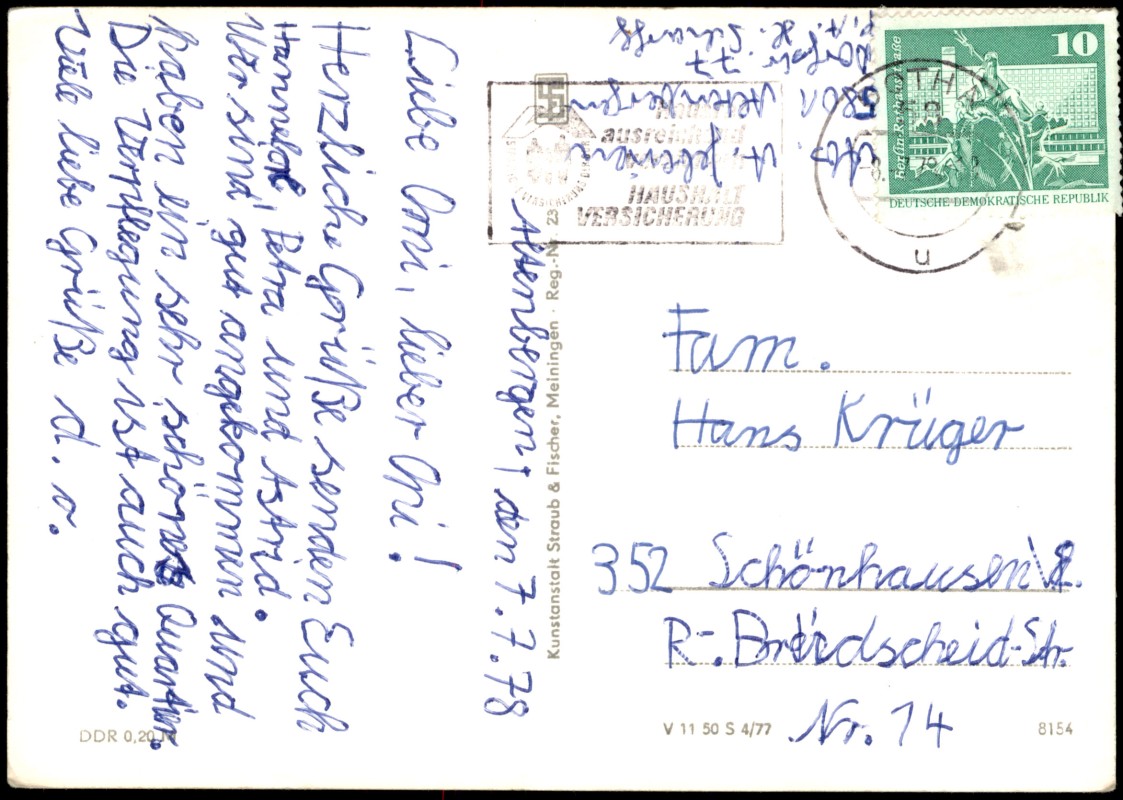 Altenbergen, den 7.7.78
Liebe Omi, lieber Opi!
Herzliche Grüße senden Euch
Hannelore, Petra und Astrid.
Wir sind gut angekommen und
haben ein sehr schönes Quartier.
Die Verpflegung ist auch gut.
Viele liebe Grüße d. o.
5801 Altenbergen
Dorfstr. 77
ausreichend
HAUSHALT
VERSICHERUNG
10
Berlin-Rathausstraße
DEUTSCHE DEMOKRATISCHE REPUBLIK
u
Fam.
Hans Krüger
352 Schönhausen/E.
R.-Breidscheid-Str.
Nr. 14
Kunstanstalt Straub & Fischer, Meiningen · Reg.-Nr. 23
DDR 0,20 M
V 11 50 S 4/77
8154